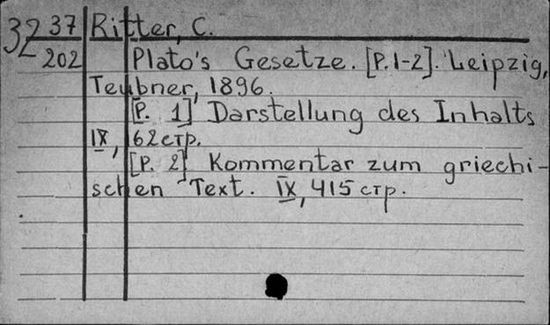 32 37 Ritter, C.
202 Plato's Gesetze. [P.1-2]. Leipzig,
Teubner, 1896.
[P. 1] Darstellung des Inhalts
IX, 62стр.
[P. 2] Kommentar zum griechi-
schen Text. IX, 415 стр.